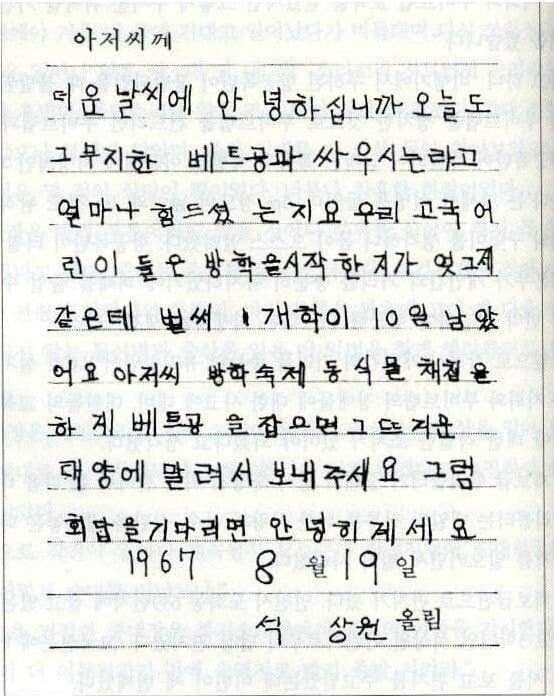 아저씨께
더운 날씨에 안녕하십니까 오늘도
구무지한 베트콩과 싸우시는라고
얼마나 힘드셨는지요 우리 고국 어
린이들은 방학을 시작한지가 엊그제
같은데 벌써 개학이 10일 남았
어요 아저씨 방학숙제 동식물 채집을
하게 베트콩을 잡으면 그 뜨거운
태양에 말려서 보내주세요 그럼
회답을 기다리면 안녕히 계세요
1967 8월 19일
석 상원 올림